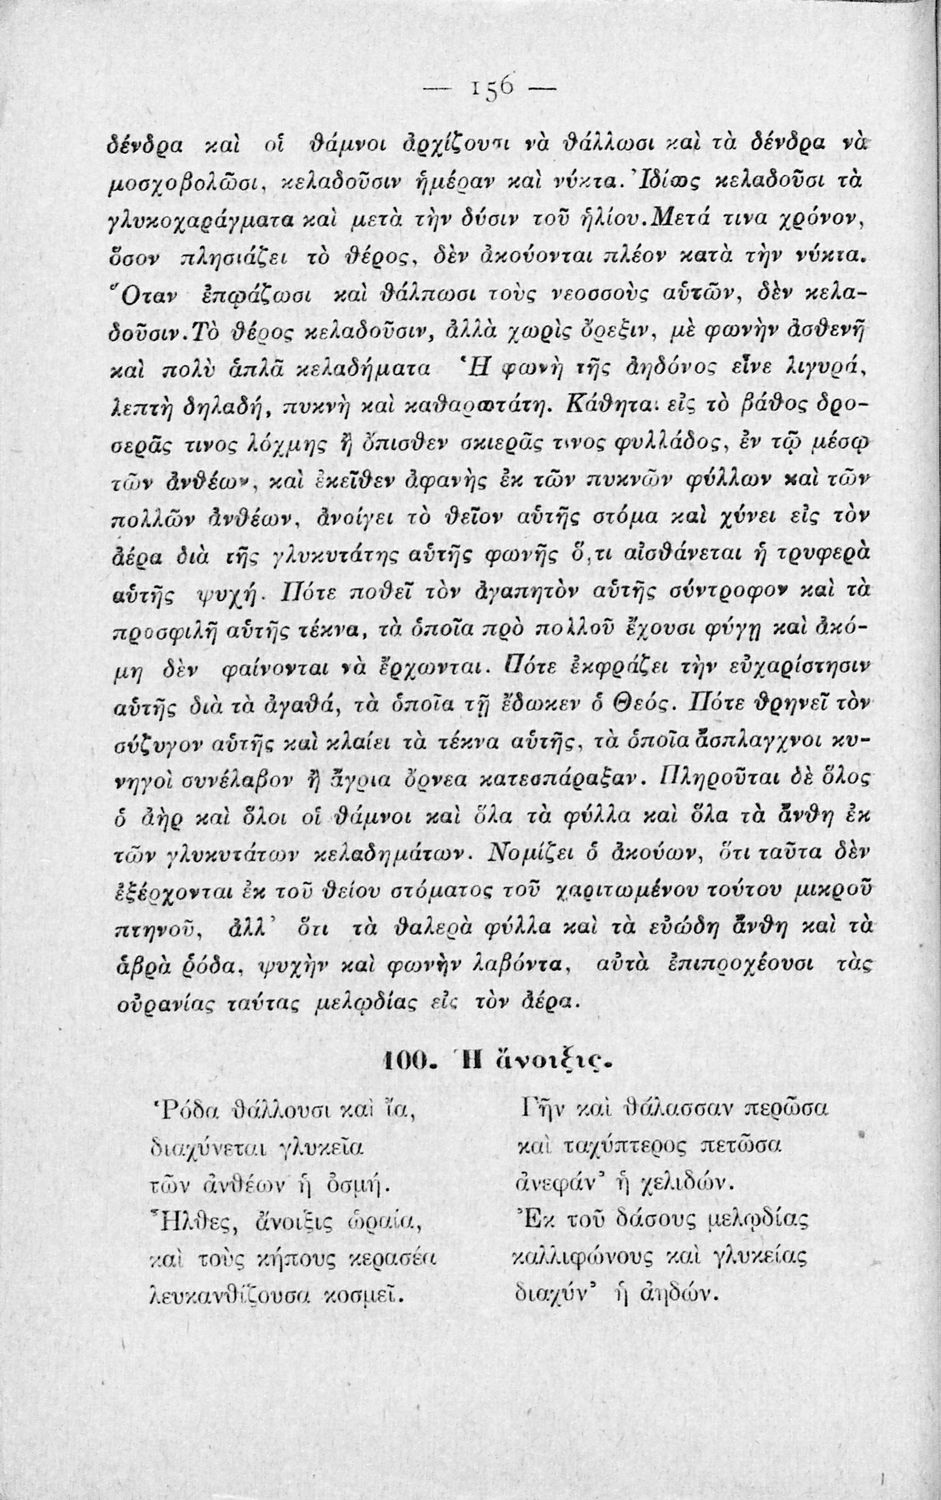 — 156 —
δένδρα καὶ οἱ θάμνοι ἀρχίζουσι νὰ θάλλωσι καὶ τὰ δένδρα νὰ
μοσχοβολῶσι, κελαδοῦσιν ἡμέραν καὶ νύκτα. Ἰδίως κελαδοῦσι τὰ
γλυκοχαράγματα καὶ μετὰ τὴν δύσιν τοῦ ἡλίου. Μετά τινα χρόνον,
ὅσον πλησιάζει τὸ θέρος, δὲν ἀκούονται πλέον κατὰ τὴν νύκτα.
Ὅταν ἐπῳάζωσι καὶ θάλπωσι τοὺς νεοσσοὺς αὑτῶν, δὲν κελα-
δοῦσιν. Τὸ θέρος κελαδοῦσιν, ἀλλὰ χωρὶς ὄρεξιν, μὲ φωνὴν ἀσθενῆ
καὶ πολὺ ἁπλᾶ κελαδήματα Ἡ φωνὴ τῆς ἀηδόνος εἶνε λιγυρά,
λεπτὴ δηλαδή, πυκνὴ καὶ καθαρωτάτη. Κάθηται εἰς τὸ βάθος δρο-
σερᾶς τινος λόχμης ἢ ὄπισθεν σκιερᾶς τινος φυλλάδος, ἐν τῷ μέσῳ
τῶν ἀνθέων, καὶ ἐκεῖθεν ἀφανὴς ἐκ τῶν πυκνῶν φύλλων καὶ τῶν
πολλῶν ἀνθέων, ἀνοίγει τὸ θεῖον αὑτῆς στόμα καὶ χύνει εἰς τὸν
ἀέρα διὰ τῆς γλυκυτάτης αὑτῆς φωνῆς ὅ,τι αἰσθάνεται ἡ τρυφερὰ
αὑτῆς ψυχή. Πότε ποθεῖ τὸν ἀγαπητὸν αὑτῆς σύντροφον καὶ τὰ
προσφιλῆ αὑτῆς τέκνα, τὰ ὁποῖα πρὸ πολλοῦ ἔχουσι φύγῃ καὶ ἀκό-
μη δὲν φαίνονται νὰ ἔρχωνται. Πότε ἐκφράζει τὴν εὐχαρίστησιν
αὑτῆς διὰ τὰ ἀγαθά, τὰ ὁποῖα τῇ ἔδωκεν ὁ Θεός. Πότε θρηνεῖ τὸν
σύζυγον αὑτῆς καὶ κλαίει τὰ τέκνα αὑτῆς, τὰ ὁποῖα ἄσπλαγχνοι κυ-
νηγοὶ συνέλαβον ἢ ἄγρια ὄρνεα κατεσπάραξαν. Πληροῦται δὲ ὅλος
ὁ ἀὴρ καὶ ὅλοι οἱ θάμνοι καὶ ὅλα τὰ φύλλα καὶ ὅλα τὰ ἄνθη ἐκ
τῶν γλυκυτάτων κελαδημάτων. Νομίζει ὁ ἀκούων, ὅτι ταῦτα δὲν
ἐξέρχονται ἐκ τοῦ θείου στόματος τοῦ χαριτωμένου τούτου μικροῦ
πτηνοῦ, ἀλλ’ ὅτι τὰ θαλερὰ φύλλα καὶ τὰ εὐώδη ἄνθη καὶ τὰ
ἁβρὰ ῥόδα, ψυχὴν καὶ φωνὴν λαβόντα, αὐτὰ ἐπιπροχέουσι τὰς
οὐρανίας ταύτας μελῳδίας εἰς τὸν ἀέρα.
100. Ἡ ἄνοιξις.
Ῥόδα θάλλουσι καὶ ἴα,
διαχύνεται γλυκεῖα
τῶν ἀνθέων ἡ ὀσμή.
Ἦλθες, ἄνοιξις ὡραία,
καὶ τοὺς κήπους κερασέα
λευκανθίζουσα κοσμεῖ.
Γῆν καὶ θάλασσαν περῶσα
καὶ ταχύπτερος πετῶσα
ἀνεφάν’ ἡ χελιδών.
Ἐκ τοῦ δάσους μελῳδίας
καλλιφώνους καὶ γλυκείας
διαχύν’ ἡ ἀηδών.